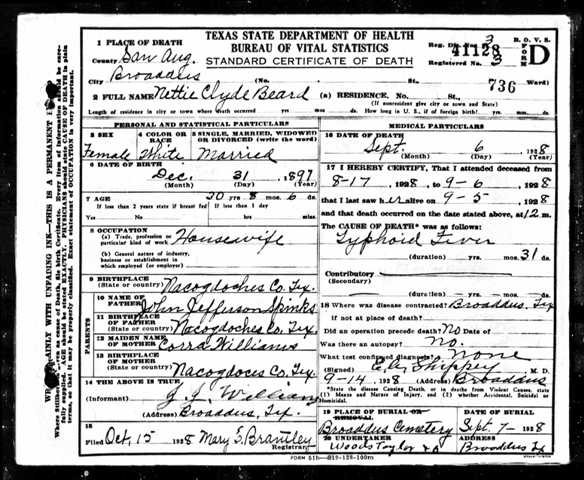 TEXAS STATE DEPARTMENT OF HEALTH
BUREAU OF VITAL STATISTICS
STANDARD CERTIFICATE OF DEATH
R.O.V.S. FORM D
Reg. Dis. 3
41128
Registered No. 3
1 PLACE OF DEATH
County San Aug.
City Broaddus (No. St., 736 Ward)
2 FULL NAME Nettie Clyde Beard (a) RESIDENCE, No. St.,
(If nonresident give city or town and State)
Length of residence in city or town where death occurred yrs. mos. ds. How long in U. S., if of foreign birth? yrs. mos. ds.
PERSONAL AND STATISTICAL PARTICULARS
3 SEX Female
4 COLOR OR RACE White
5 SINGLE, MARRIED, WIDOWED OR DIVORCED (write the word) Married
6 DATE OF BIRTH
Dec. 31 1897
(Month) (Day) (Year)
7 AGE 30 yrs 8 mos. 6 ds.
If less than 2 years state if breast fed If less than 1 day
8 OCCUPATION
(a) Trade, profession or particular kind of work Housewife
(b) General nature of industry, business or establishment in which employed (or employer)
9 BIRTHPLACE
(State or country) Nacogdoches Co. Tex.
PARENTS
10 NAME OF FATHER John Jefferson Spinks
11 BIRTHPLACE OF FATHER
(State or country) Nacogdoches Co. Tex.
12 MAIDEN NAME OF MOTHER Corra Williams
13 BIRTHPLACE OF MOTHER
(State or country) Nacogdoces Co. Tex.
14 THE ABOVE IS TRUE
(Informant)
(Address) Broaddus, Tex.
15
Filed Oct, 15 1928 Mary S. Brantley
Registrar
MEDICAL PARTICULARS
16 DATE OF DEATH
Sept. 6 1928
(Month) (Day) (Year)
17 I HEREBY CERTIFY, That I attended deceased from
8-17 1928, to 9-6 1928
that I last saw her alive on 9-5 1928
and that death occurred on the date stated above, at 12 m.
The CAUSE OF DEATH* was as follows:
Typhoid Fever
(duration) yrs. mos. 31 ds.
Contributory
(Secondary)
(duration) yrs. mos. ds.
18 Where was disease contracted? Broaddus, Tex
if not at place of death?
Did an operation precede death? No Date of
Was there an autopsy? no.
What test confirmed diagnosis? none
(Signed) M. D.
9-14, 1928 (Address) Broaddus
*State the disease Causing Death, or in deaths from Violent Causes, state (1) Means and Nature of Injury, and (2) whether Accidental, Suicidal or Homicidal.
19 PLACE OF BURIAL OR REMOVAL
Broaddus Cemetery
DATE OF BURIAL
Sept. 7- 1928
20 UNDERTAKER
ADDRESS
Broaddus Tx